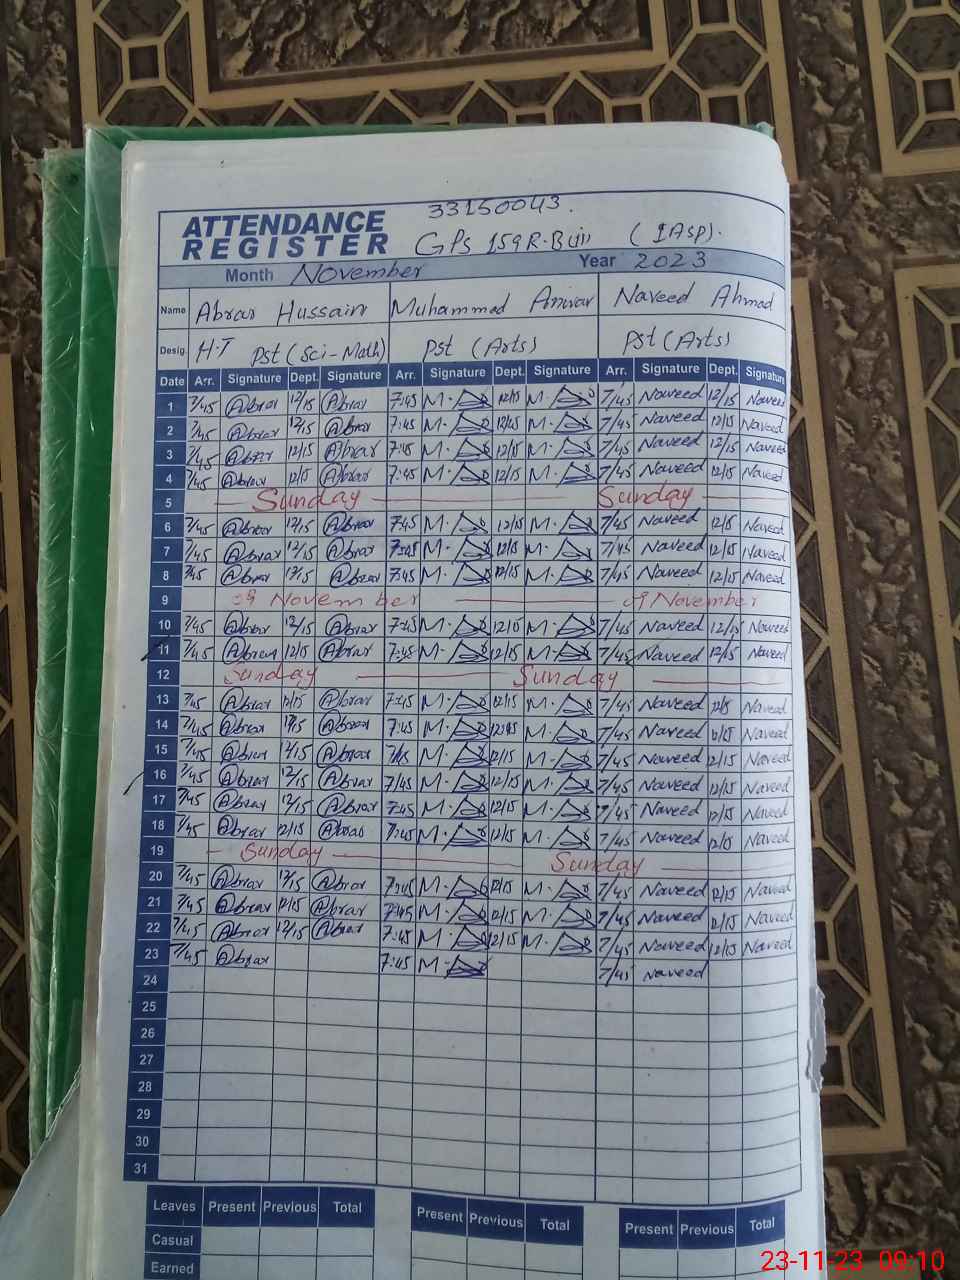 33150043.
ATTENDANCE
REGISTER
GPS 159 R.B (IASP).
Month November Year 2023
Name Abrar Hussain Muhammad Anwar Naveed Ahmad
Desig. H.T PST (Sci-Math) PST (Arts) PST (Arts)
Date Arr. Signature Dept. Signature Arr. Signature Dept. Signature Arr. Signature Dept. Signature
1 7/45 Abrar 12/15 Abrar 7:45 M. 12/15 M. 7/45 Naveed 12/15 Naveed
2 7/45 Abrar 12/15 Abrar 7:45 M. 12/15 M. 7/45 Naveed 12/15 Naveed
3 7/45 Abrar 12/15 Abrar 7:45 M. 12/15 M. 7/45 Naveed 12/15 Naveed
4 7/45 Abrar 12/15 Abrar 7:45 M. 12/15 M. 7/45 Naveed 12/15 Naveed
5 Sunday Sunday
6 7/45 Abrar 12/15 Abrar 7:45 M. 12/15 M. 7/45 Naveed 12/15 Naveed
7 7/45 Abrar 12/15 Abrar 7:45 M. 12/15 M. 7/45 Naveed 12/15 Naveed
8 7/45 Abrar 12/15 Abrar 7:45 M. 12/15 M. 7/45 Naveed 12/15 Naveed
9 09 November 09 November
10 7/45 Abrar 12/15 Abrar 7:45 M. 12/15 M. 7/45 Naveed 12/15 Naveed
11 7/45 Abrar 12/15 Abrar 7:45 M. 12/15 M. 7/45 Naveed 12/15 Naveed
12 Sunday Sunday
13 7/45 Abrar 12/15 Abrar 7:45 M. 12/15 M. 7/45 Naveed 12/15 Naveed
14 7/45 Abrar 12/15 Abrar 7:45 M. M. 7/45 Naveed 12/15 Naveed
15 7/45 Abrar 12/15 Abrar M. 12/15 M. 7/45 Naveed 12/15 Naveed
16 7/45 Abrar 12/15 Abrar 7/45 M. 12/15 M. 7/45 Naveed 12/15 Naveed
17 7/45 Abrar 12/15 Abrar 7:45 M. 12/15 M. 7/45 Naveed 12/15 Naveed
18 7/45 Abrar 12/15 Abrar 7:45 M. 12/15 M. 7/45 Naveed 12/15 Naveed
19 Sunday Sunday
20 7/45 Abrar 12/15 Abrar 7:45 M. 12/15 M. 7/45 Naveed 12/15 Naveed
21 7/45 Abrar 12/15 Abrar 7:45 M. 12/15 M. 7/45 Naveed 12/15 Naveed
22 7/45 Abrar 12/15 Abrar 7:45 M. 12/15 M. 7/45 Naveed 12/15 Naveed
23 7/45 Abrar 7:45 M. 7/45 Naveed
24
25
26
27
28
29
30
31
Leaves Present Previous Total Present Previous Total Present Previous Total
Casual
Earned
23-11-23 09:10